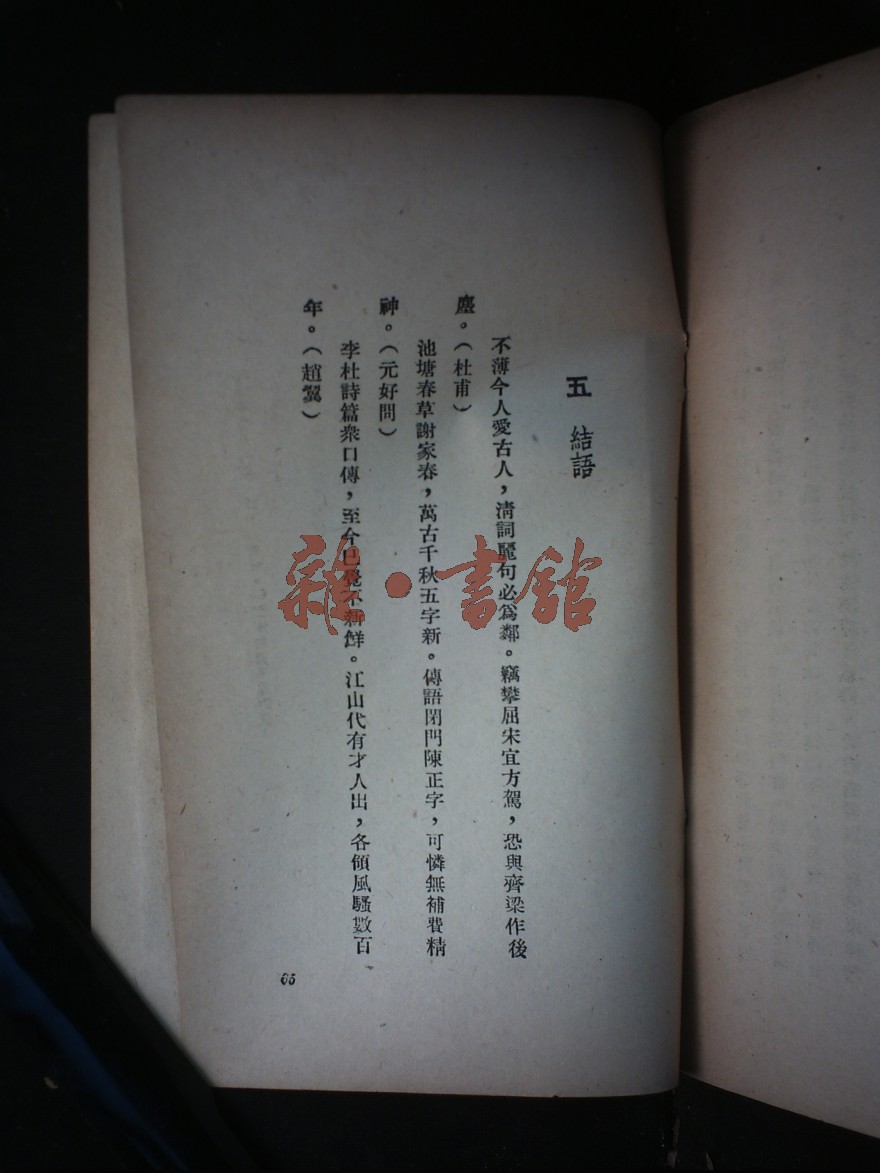 五 結語
不薄今人愛古人，清詞麗句必爲鄰。竊攀屈宋宜方駕，恐與齊梁作後
塵。（杜甫）
池塘春草謝家春，萬古千秋五字新。傳語閉門陳正字，可憐無補費精
神。（元好問）
李杜詩篇衆口傳，至今已覺不新鮮。江山代有才人出，各領風騷數百
年。（趙翼）
65
雜·書館